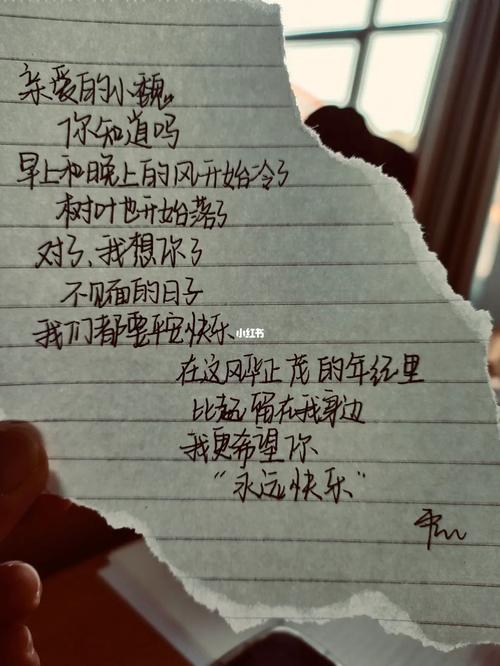 亲爱的小魏。
你知道吗
早上和晚上的风开始冷了
树叶也开始落了
对了、我想你了
不见面的日子
我们都要平安快乐
小红书
在这风华正茂的年纪里
比起留在我身边
我更希望你
“永远快乐”